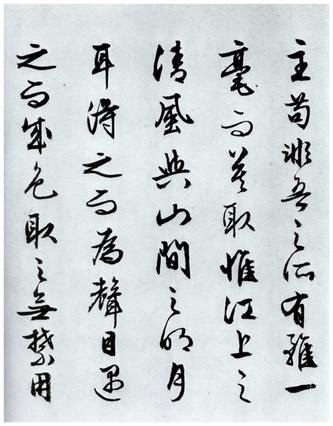 主苟非吾之所有雖一
毫而莫取惟江上之
清風與山間之明月
耳得之而為聲目遇
之而成色取之無禁用